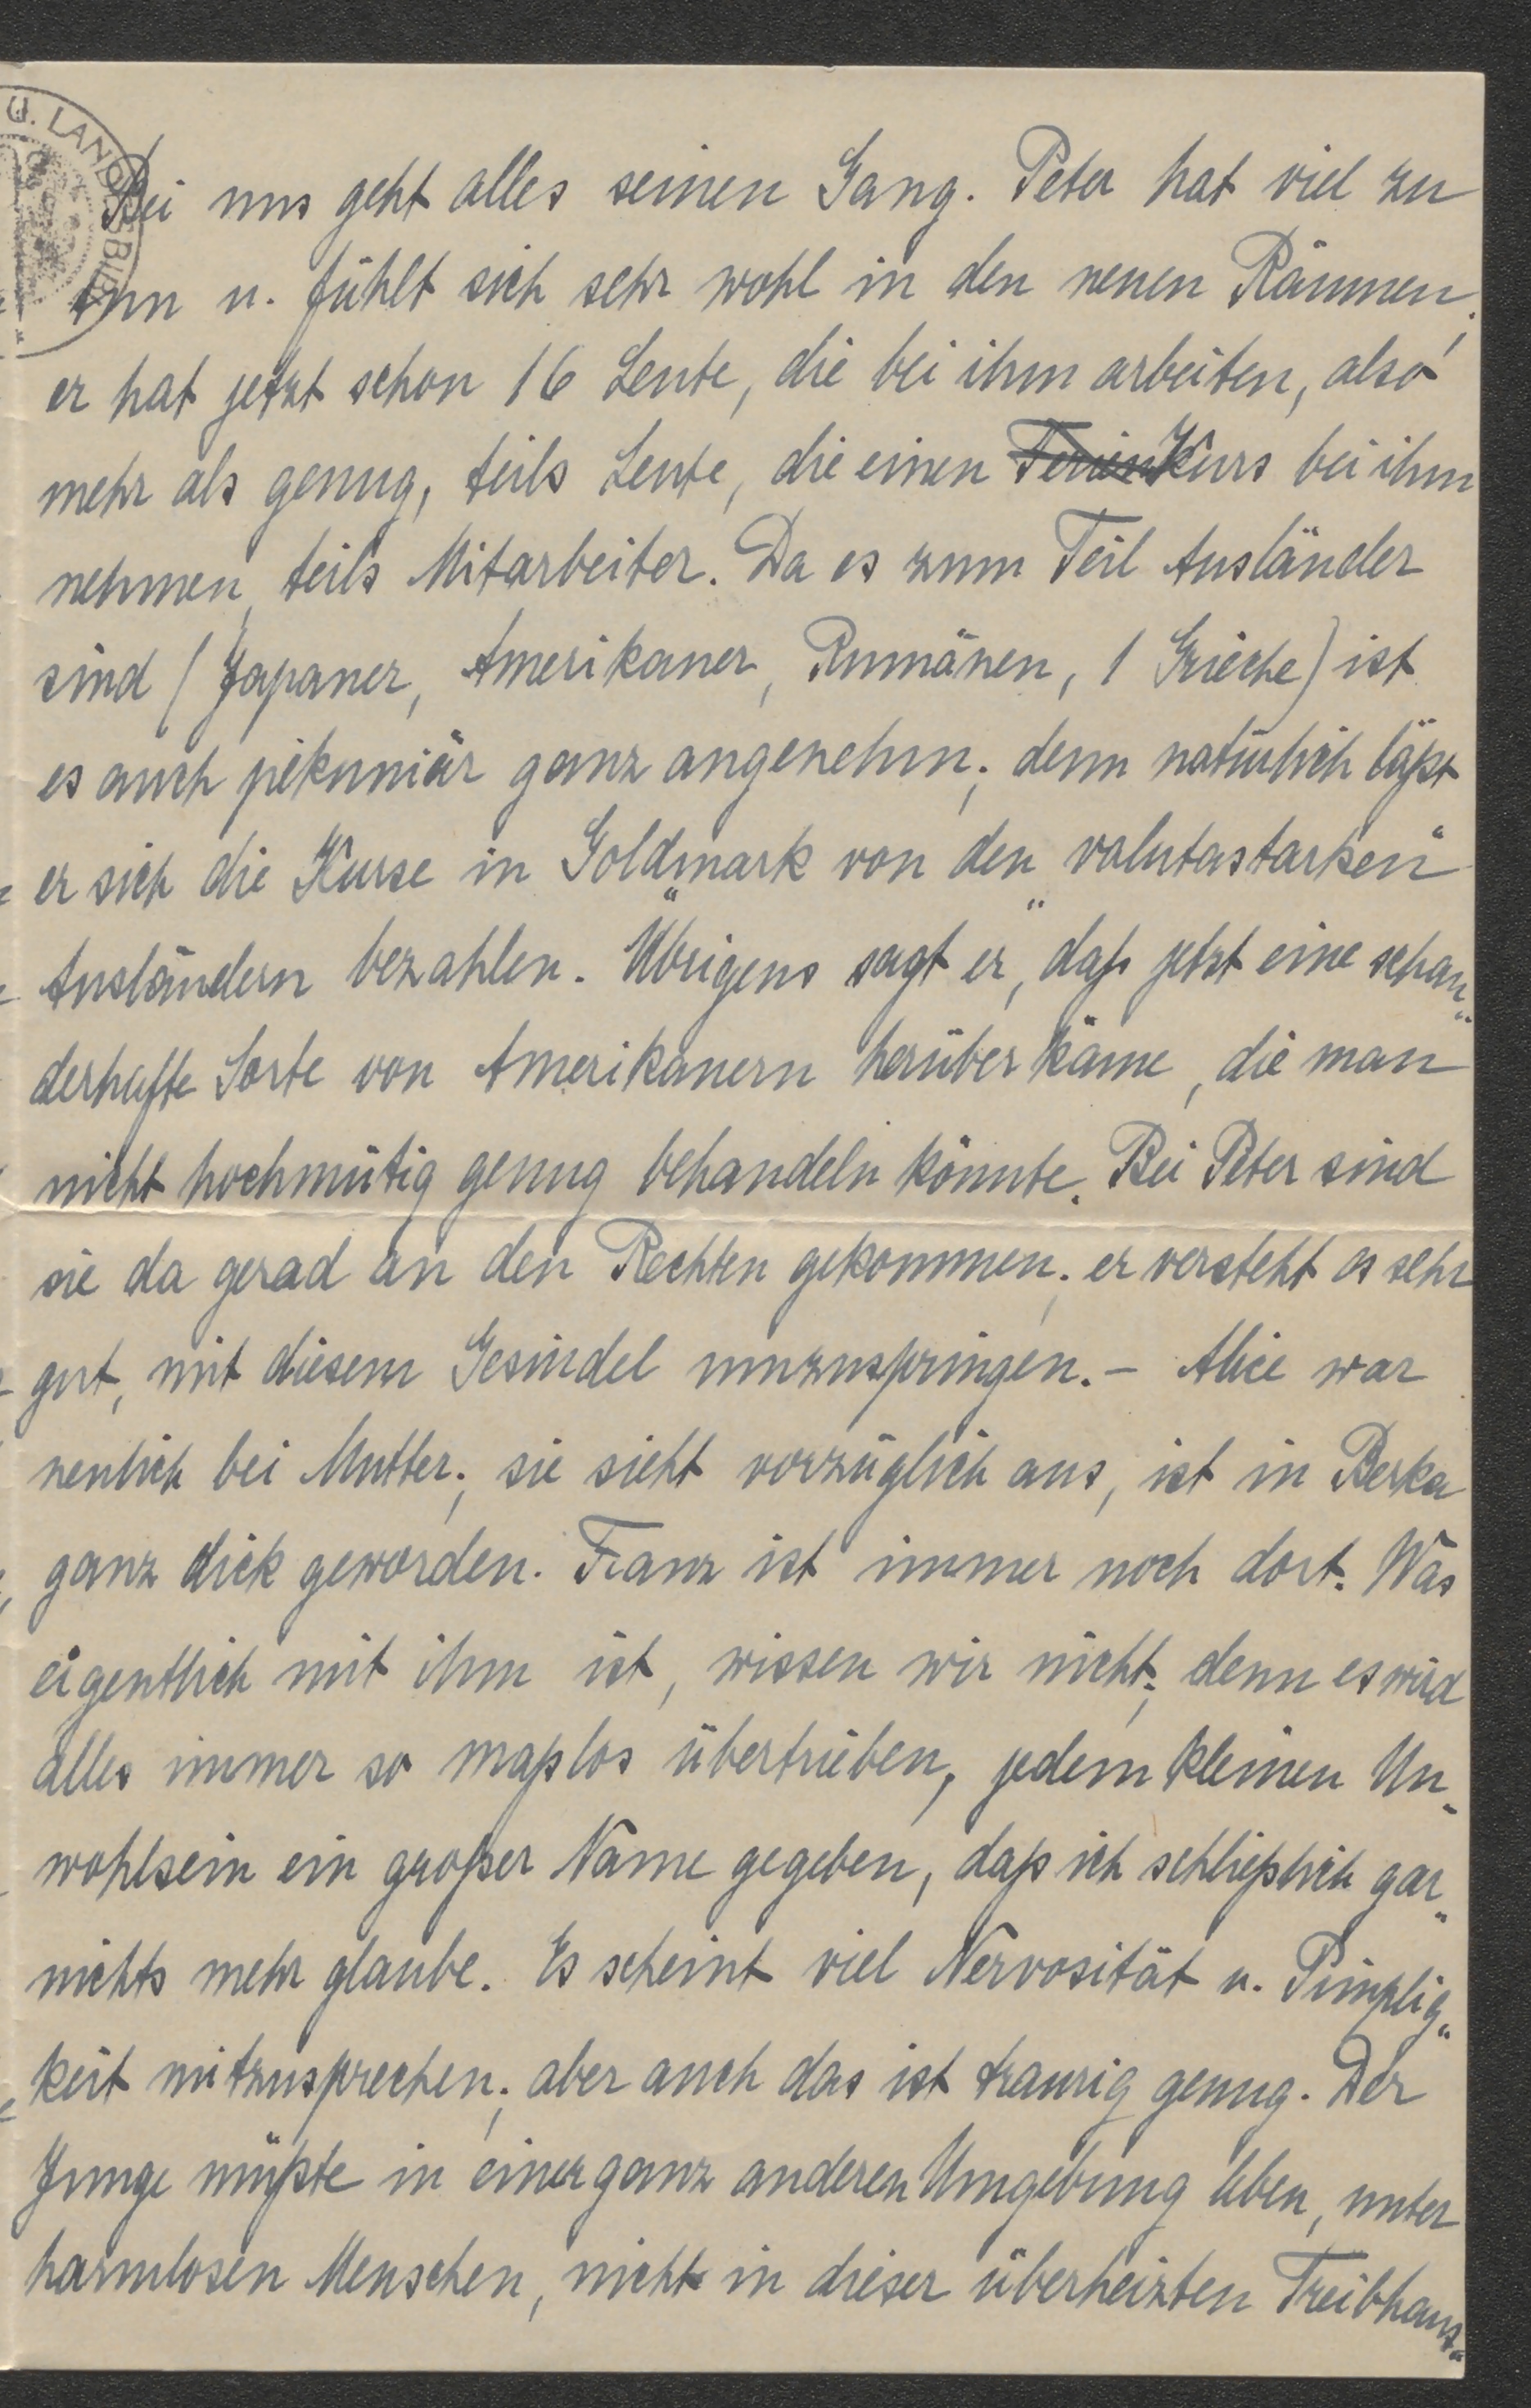 U. LANDESBIB
Bei uns geht alles seinen Gang. Peter hat viel zu
tun u. fühlt sich sehr wohl in den neuen Räumen;
er hat jetzt schon 16 Leute, die bei ihm arbeiten, also
mehr als genug, teils Leute, die einen Ferienkurs bei ihm
nehmen, teils Mitarbeiter. Da es zum Teil Ausländer
sind (Japaner, Amerikaner, Rumänen, 1 Grieche) ist
es auch pekuniär ganz angenehm; denn natürlich läßt
er sich die Kurse in Goldmark von den „valutastarken“
Ausländern bezahlen. Übrigens sagt er, daß jetzt eine schau„
derhafte Sorte von Amerikanern herüber käme, die man
nicht hochmütig genug behandeln könnte. Bei Peter sind
sie da gerad an den Rechten gekommen; er versteht es sehr
gut, mit diesem Gesindel umzuspringen. – Alice war
neulich bei Mutter; sie sieht vorzüglich aus, ist in Berka
ganz dick geworden. Franz ist immer noch dort. Was
eigentlich mit ihm ist, wissen wir nicht; denn es wird
alles immer so maßlos übertrieben, jedem kleinen Un„
wohlsein ein großer Name gegeben, daß ich schließlich gar„
nichts mehr glaube. Es scheint viel Nervosität u. Pimplig„
keit mitzusprechen; aber auch das ist traurig genug. Der
Junge müßte in einer ganz anderen Umgebung leben, unter
harmlosen Menschen, nicht in dieser überheizten Treibhaus„